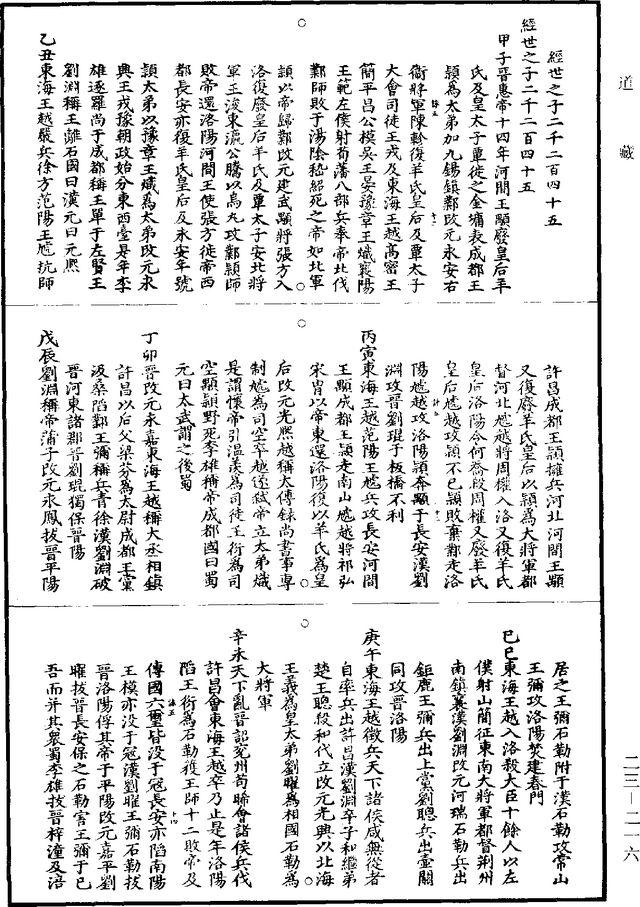 道藏
經世之子二千二百四十五
經世之子二千二百四十五
甲子晉惠帝十四年河間王顒廢皇后羊
氏及皇太子覃徙之金墉表成都王
穎為太弟加九錫鎮鄴改元永安右
衞將軍陳眕復羊氏皇后及覃太子
大會司徒王戎及東海王越高密王
簡平昌公模吳王晏豫章王熾襄陽
王範左僕射荀藩八部兵奉帝北伐
鄴師敗于湯陰嵇紹死之帝如北軍
穎以帝歸鄴改元建武顒將張方入
洛復廢皇后羊氏及覃太子安北將
軍王浚東瀛公騰以烏丸攻鄴穎師
敗帝還洛陽河間王使張方徙帝西
都長安亦復羊氏皇后及永安年號
顗太弟以豫章王熾為太弟改元永
興王戎豫朝政始分東西臺是年李
雄逐羅尚于成都稱王單于左賢王
劉淵稱王離石國曰漢元曰元熙
乙丑東海王越嚴兵徐方范陽王虓抗師
許昌成都王穎擁兵河北河間王顒
又復廢羊氏皇后以穎為大將軍都
督河北虓越將周權入洛又復羊氏
皇后洛陽令何喬殺周權又廢羊氏
皇后虓越攻穎不已穎敗棄鄴走洛
陽虓越攻洛陽穎奔顒于長安漢劉
淵攻晉劉琨于板橋不利
丙寅東海王越范陽王虓兵攻長安河間
王顒成都王穎走南山虓越將祁弘
宋胄以帝東還洛陽復以羊氏為皇
后改元光熙越稱太傅錄尚書事專
制虓為司空卒越遂弒帝立太弟熾
是謂懷帝引溫羨為司徒王衍為司
空顒穎野死李雄稱帝成都國曰蜀
元曰太武謂之後蜀
丁卯晉改元永嘉東海王越稱大丞相鎮
許昌以后父梁芬為太尉成都王黨
汲桑陷鄴王彌稱兵青徐漢劉淵破
晉河東諸郡晉劉琨獨保晉陽
戊辰劉淵稱帝蒲子改元永鳳拔晉平陽
居之王彌石勒附于漢石勒攻常山
王彌攻洛陽焚建春門
己巳東海王越入洛殺大臣十餘人以左
僕射山簡征東南大將軍都督荆州
南鎮襄漢劉淵改元河瑞石勒兵出
鉅鹿王彌兵出上黨劉聰兵出壼關
同攻晉洛陽
庚午東海王越徵兵天下諸侯咸無從者
自率兵出許昌漢劉淵卒子和繼弟
楚王聰殺和代立改元光興以北海
王義為皇太弟劉曜為相國石勒為
大將軍
辛未天下亂晉詔兖州荀晞會諸侯兵伐
許昌會東海王越卒乃止是年洛陽
陷王衍為石勒獲王師十二敗帝及
傳國六璽皆没于冦長安亦陷南陽
王模亦没于冦漢劉曜王彌石勒拔
晉洛陽俘其帝于平陽改元嘉平劉
曜拔晉長安保之石勒害王彌于己
吾而并其衆蜀李雄拔晉梓潼及涪
二三—二一六